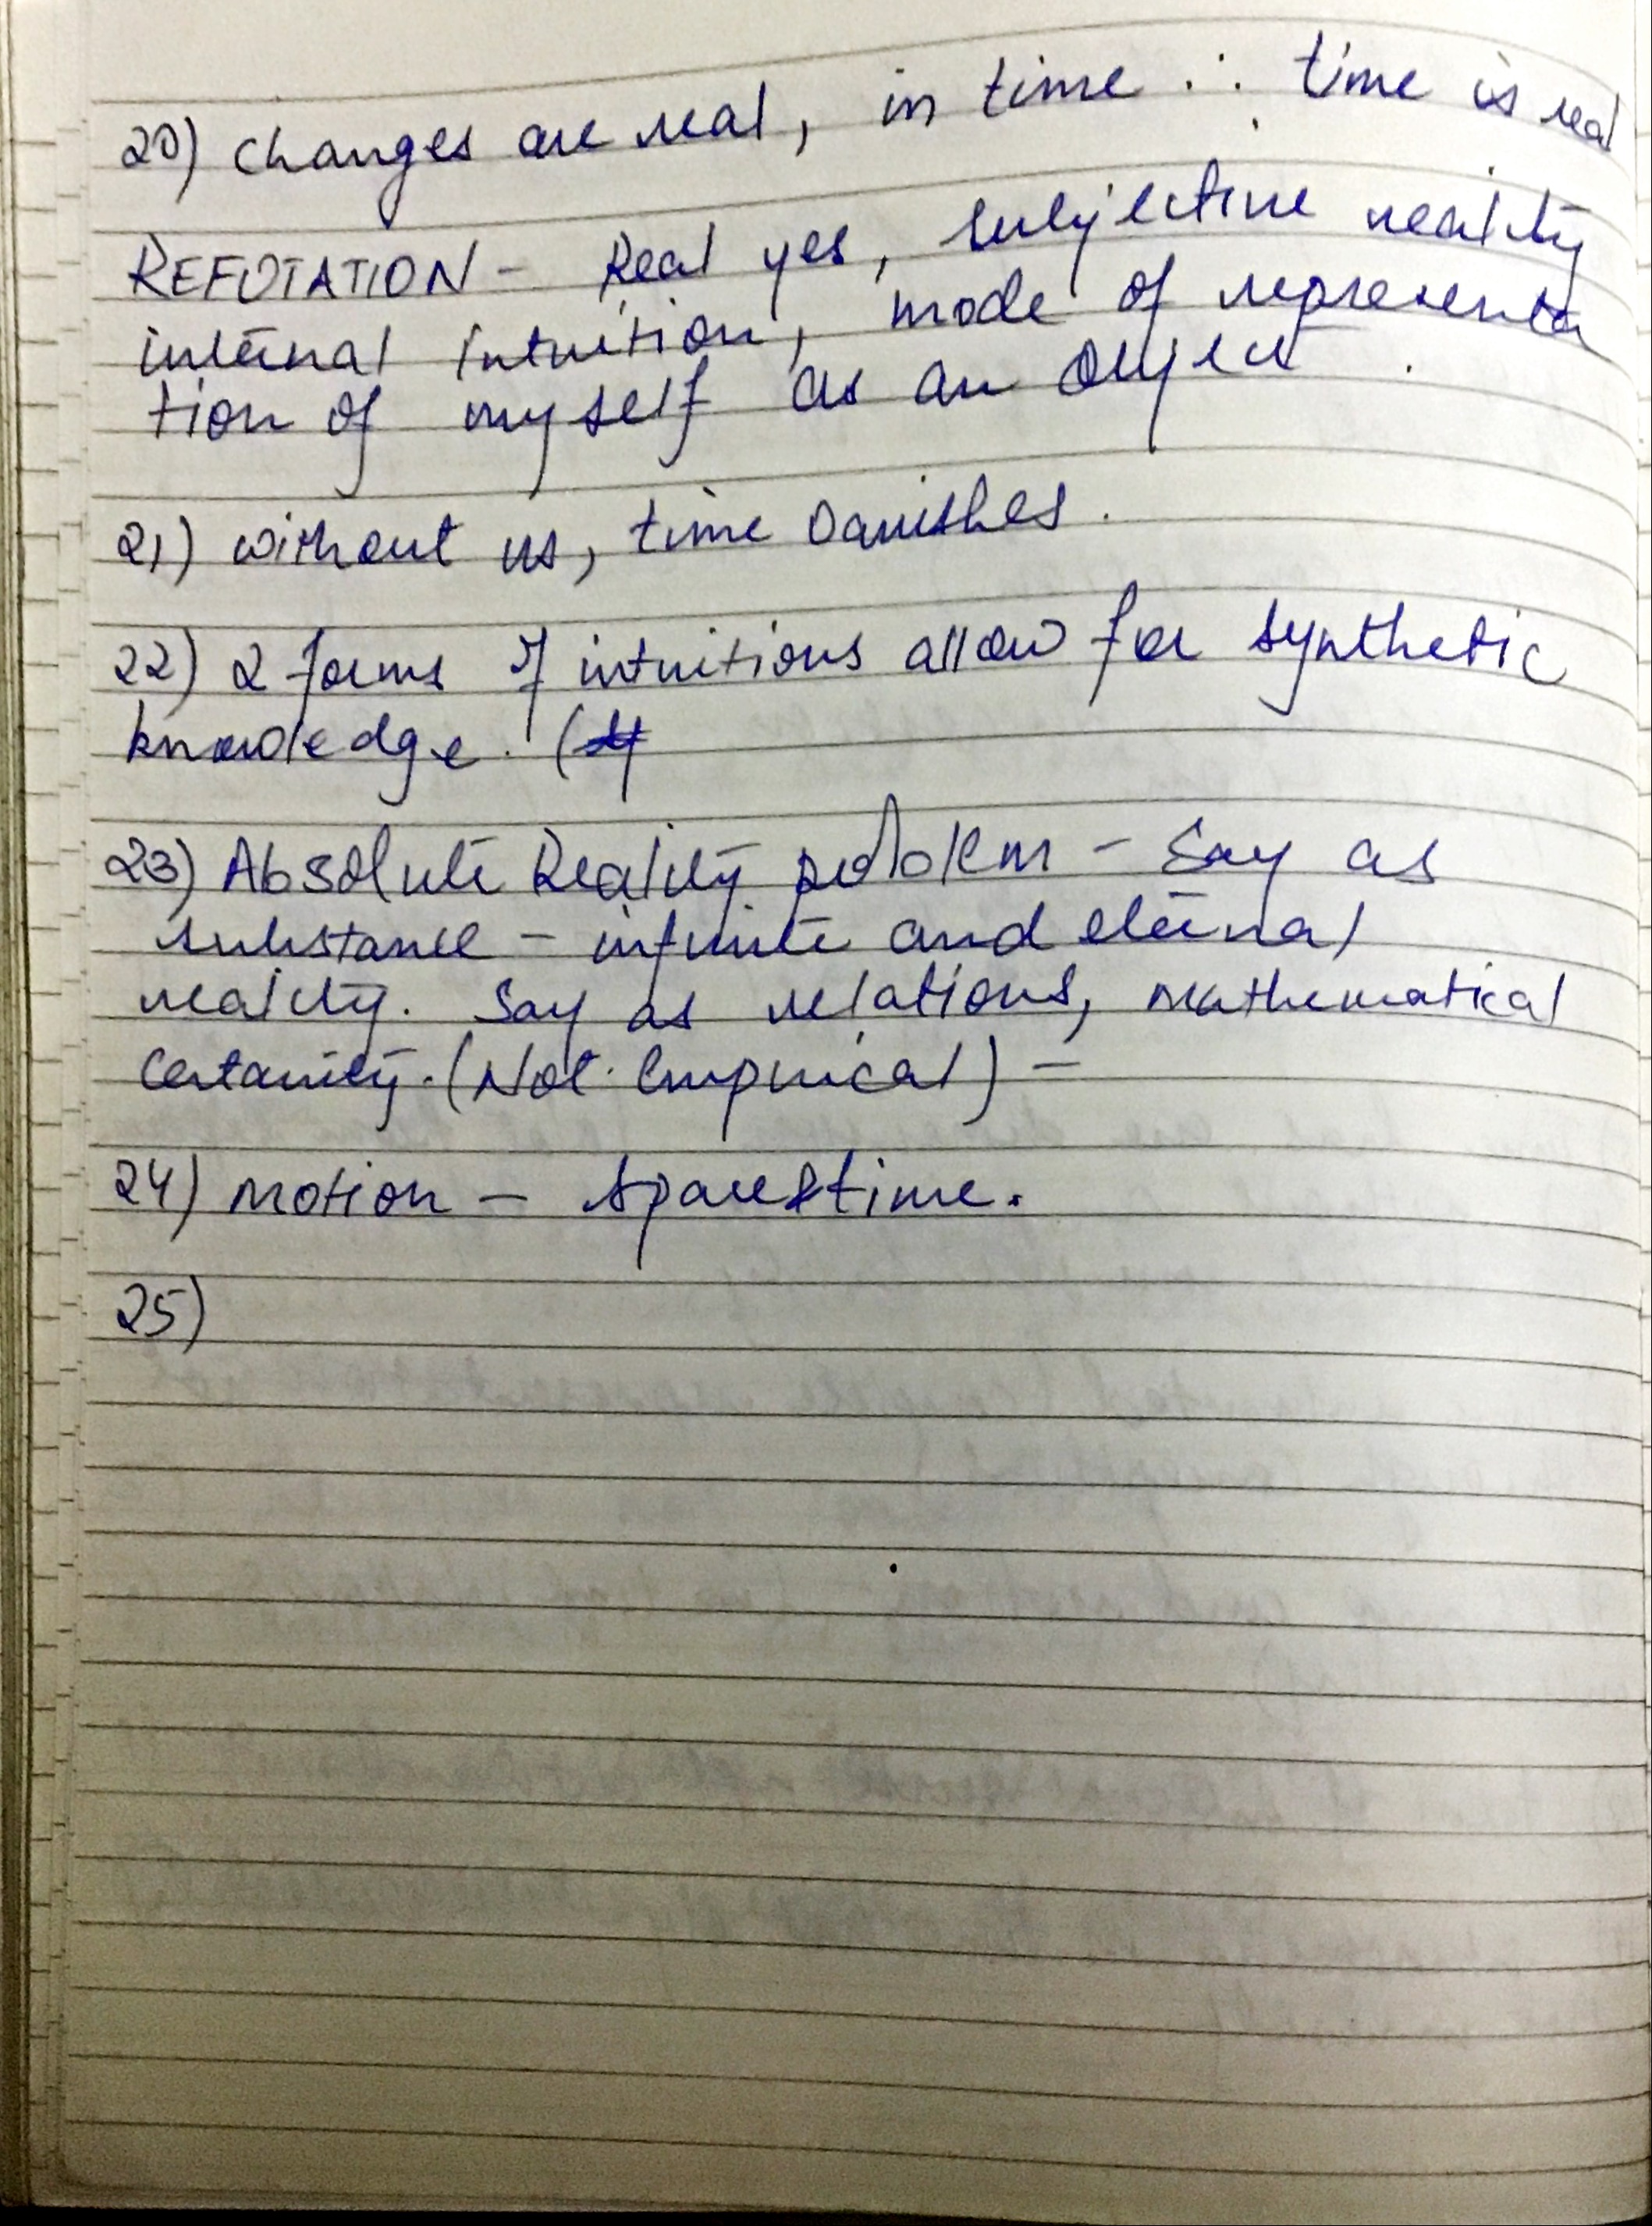 20) Changes are real, in time ∴ time is real
REFUTATION - Real yes, subjective reality
internal intuition, mode of representa
tion of myself as an object.
21) without us, time vanishes.
22) 2 forms of intuitions allow for synthetic
knowledge. (
23) Absolute Reality problem - Say as
substance - infinite and eternal
reality. Say as relations, mathematical
certainity. (Not Empirical) -
24) Motion - space & time.
25)